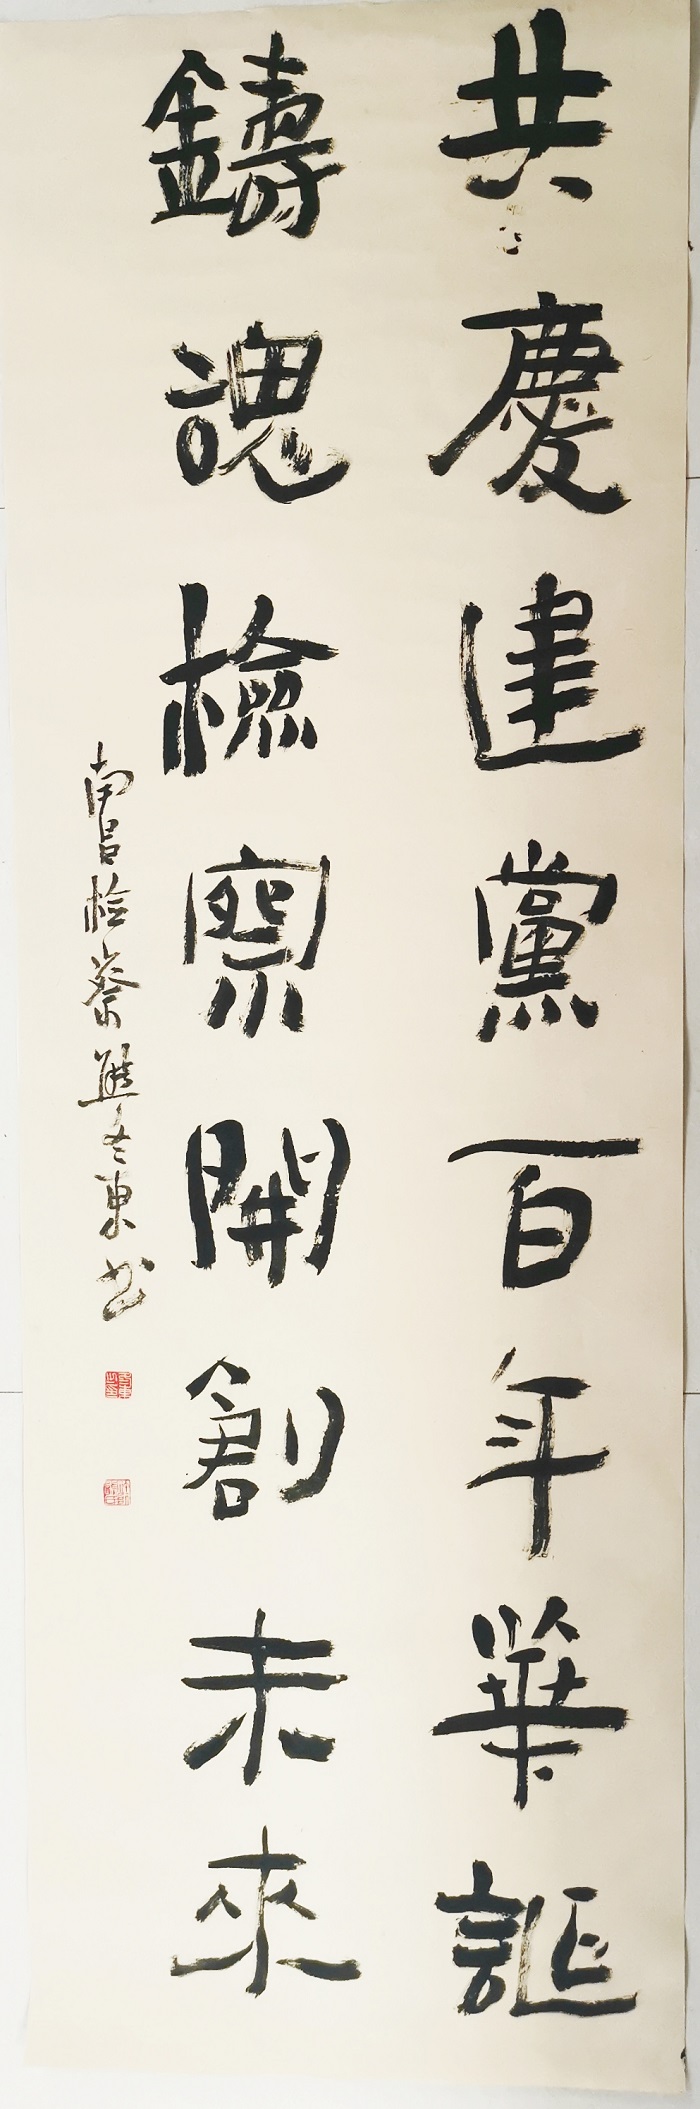 共慶建黨百年華誕
鑄魂檢察開創未來
南昌檢察熊冬東书